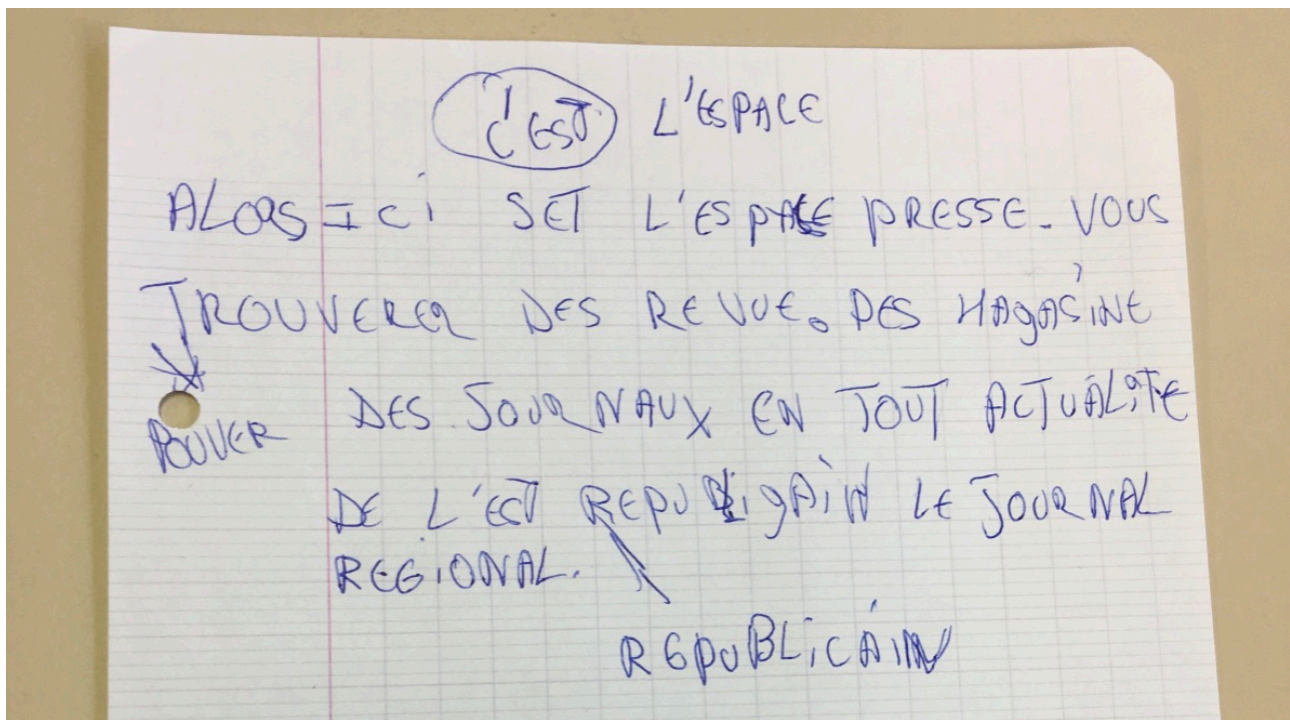 C'EST L'ESPACE
ALORS ICI SET L'ESPACE PRESSE. VOUS
TROUVEREZ DES REVUE. DES MAGASINE
DES JOURNAUX EN TOUT ACTUALITE
POUVER
DE L'EST REPUBLIGAIN LE JOURNAL
REGIONAL.
REPUBLICAIN